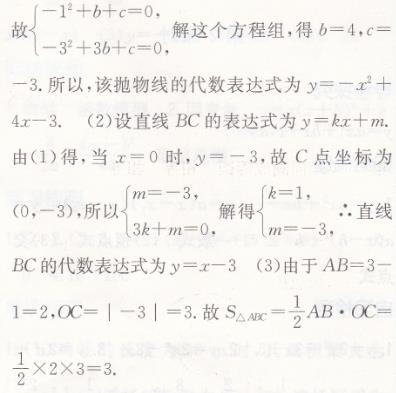 故{−1²+b+c=0, −3²+3b+c=0, 解这个方程组,得 b=4,c=
−3. 所以,该抛物线的代数表达式为 y=−x²+
4x−3. (2)设直线 BC 的表达式为 y=kx+m.
由(1)得,当 x=0 时,y=−3,故 C 点坐标为
(0,−3),所以{m=−3, 3k+m=0, 解得{k=1, m=−3, ∴直线
BC 的代数表达式为 y=x−3 (3)由于 AB=3−
1=2,OC=|−3|=3. 故 S△ABC=1/2 AB·OC=
1/2×2×3=3.